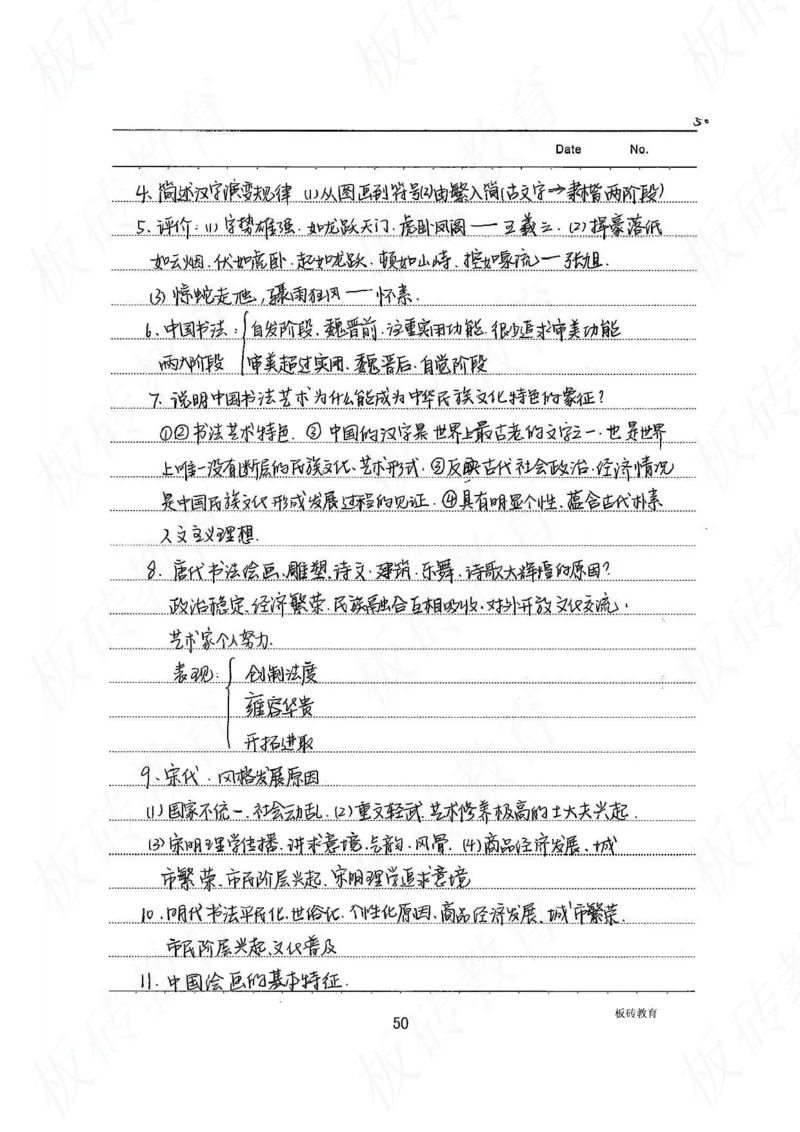 50
Date No.
4、简述汉字演变规律 (1)从图画到符号(2)由繁入简(古文字→隶楷两阶段)
5、评价:(1)字势雄强、如龙跃天门、虎卧凤阁——王羲之.(2)挥豪落纸
如云烟、伏如虎卧、起如龙跃、顿如山峙、控如泉流——张旭.
(3)惊蛇走虺,骤雨狂风——怀素.
6、中国书法:{自发阶段、魏晋前、注重实用功能、很少追求审美功能
两大阶段 审美超过实用、魏晋后、自觉阶段
7、说明中国书法艺术为什么能成为中华民族文化特色的象征?
①②书法艺术特色.②中国的汉字是世界上最古老的文字之一、也是世界
上唯一没有断层的民族文化、艺术形式.③反映古代社会政治、经济情况
是中国民族文化形成发展过程的见证.④具有明显个性、蕴含古代朴素
人文主义理想.
8、唐代书法绘画、雕塑、诗文、建筑、乐舞、诗歌大辉煌的原因?
政治稳定、经济繁荣、民族融合互相吸收、对外开放文化交流,
艺术家个人努力.
表现:{创制法度
雍容华贵
开拓进取
9、宋代、风格发展原因
(1)国家不统一、社会动乱.(2)重文轻武、艺术修养极高的士大夫兴起.
(3)宋明理学传播、讲求意境、气韵、风骨.(4)商品经济发展、城
市繁荣、市民阶层兴起、宋明理学追求意境
10、明代书法平民化、世俗化、个性化原因、商品经济发展、城市繁荣、
市民阶层兴起、文化普及
11、中国绘画的基本特征.
50
板砖教育